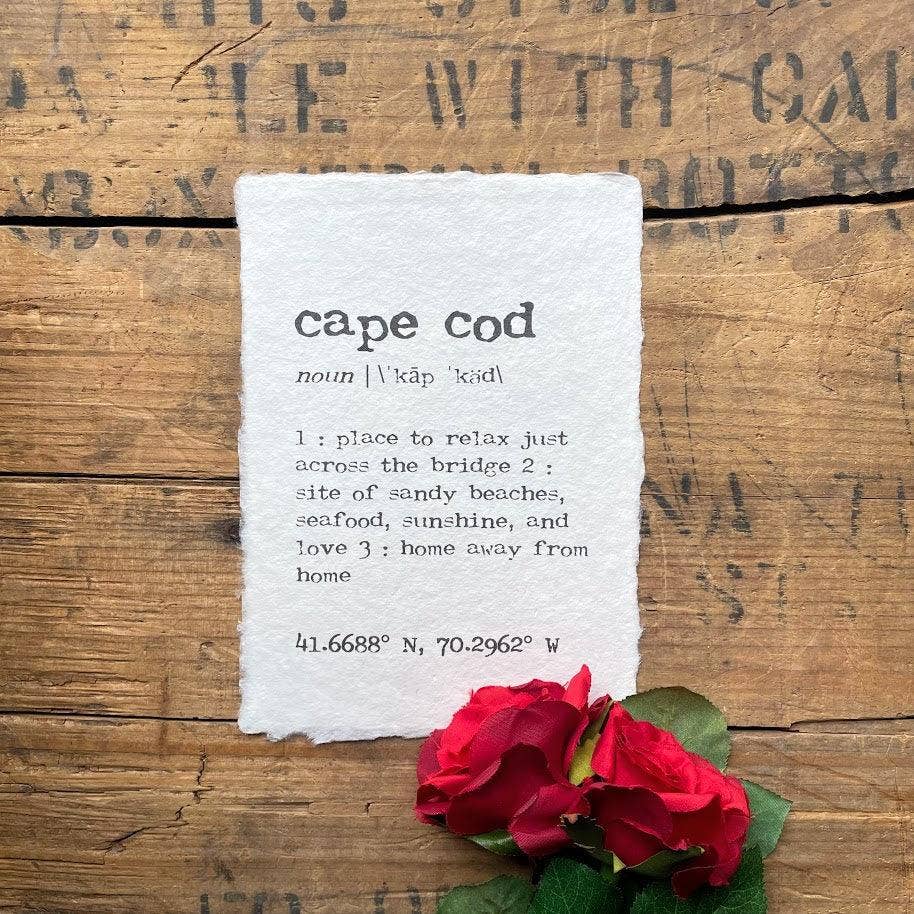 LE WITH CAN
cape cod
noun | \ˈkāp ˈkäd\
1 : place to relax just
across the bridge 2 :
site of sandy beaches,
seafood, sunshine, and
love 3 : home away from
home
41.6688° N, 70.2962° W
ST